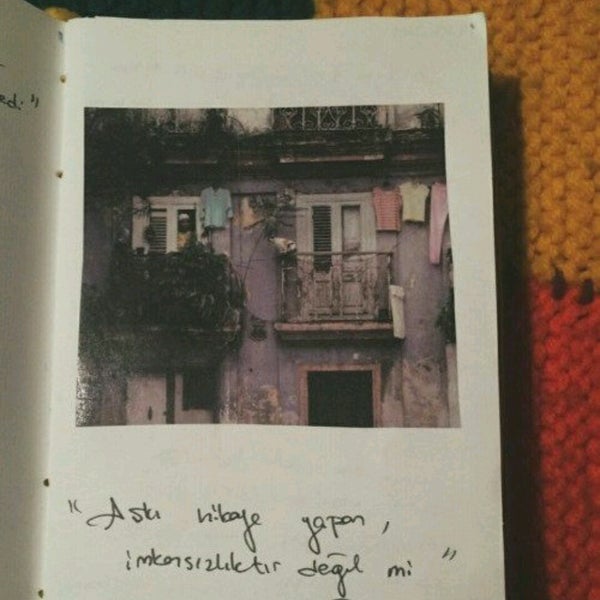 edi"
"Aşkı hikaye yapan,
imkansızlıktır değil mi"